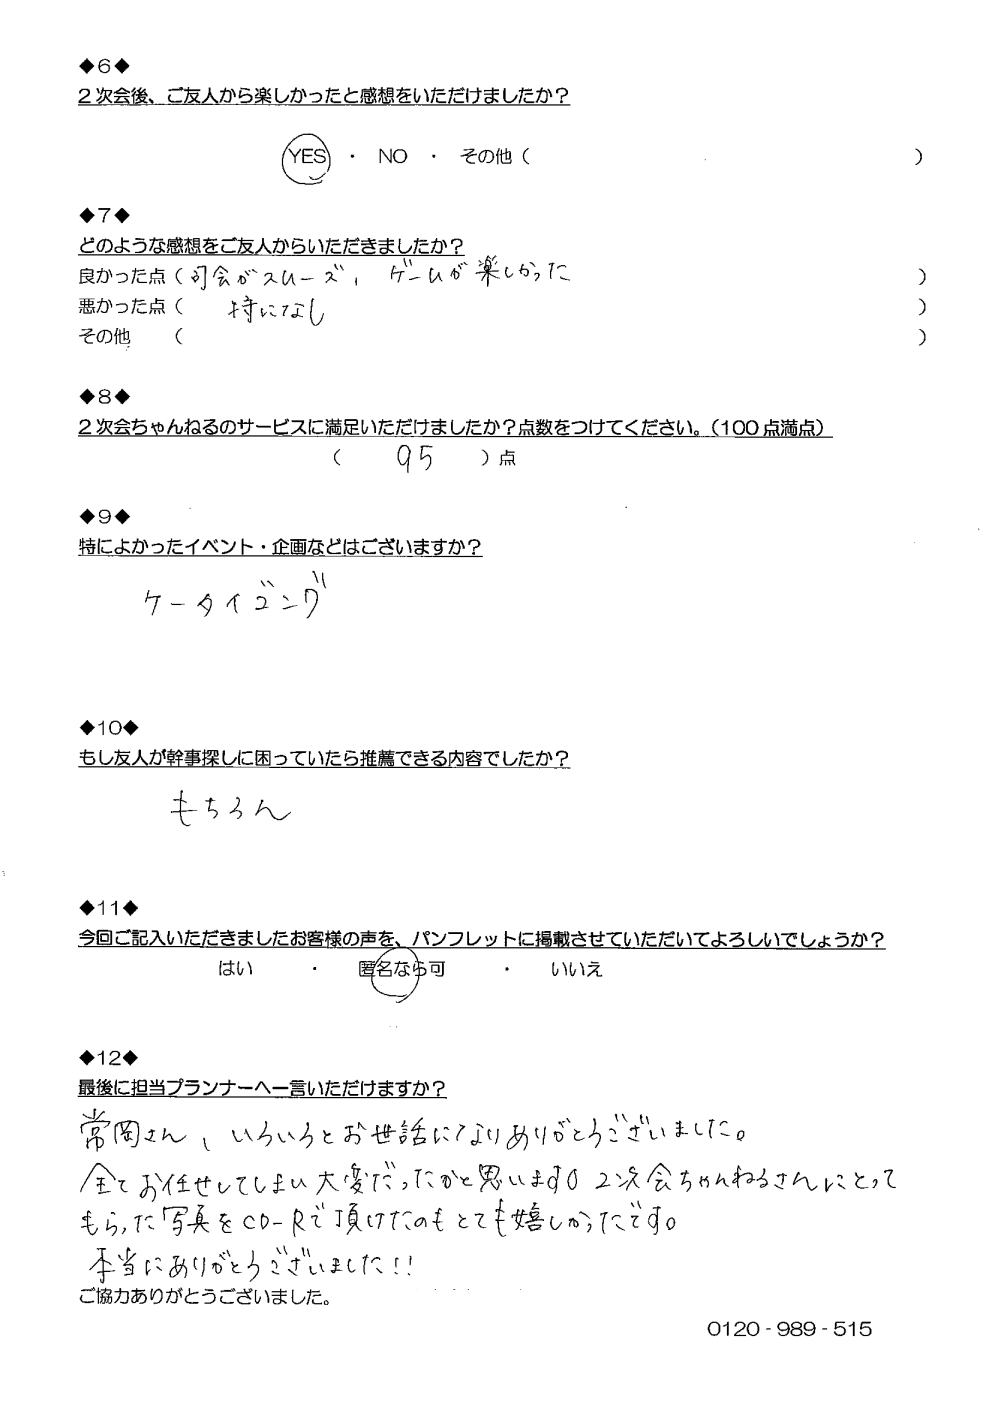 ◆6◆
2次会後、ご友人から楽しかったと感想をいただけましたか?
YES ・ NO ・ その他( )
◆7◆
どのような感想をご友人からいただきましたか?
良かった点( 司会がスムーズ、 ゲームが楽しかった )
悪かった点( 特になし )
その他 ( )
◆8◆
2次会ちゃんねるのサービスに満足いただけましたか?点数をつけてください。(100点満点)
( 95 )点
◆9◆
特によかったイベント・企画などはございますか?
ケータイビンゴ
◆10◆
もし友人が幹事探しに困っていたら推薦できる内容でしたか?
もちろん
◆11◆
今回ご記入いただきましたお客様の声を、パンフレットに掲載させていただいてよろしいでしょうか?
はい ・ 匿名なら可 ・ いいえ
◆12◆
最後に担当プランナーへ一言いただけますか?
常岡さん、いろいろとお世話になりありがとうございました。
全てお任せしてしまい大変だったかと思います。2次会ちゃんねるさんにとって
もらった写真をCD-Rで頂けたのもとても嬉しかったです。
本当にありがとうございました!!
ご協力ありがとうございました。
0120-989-515